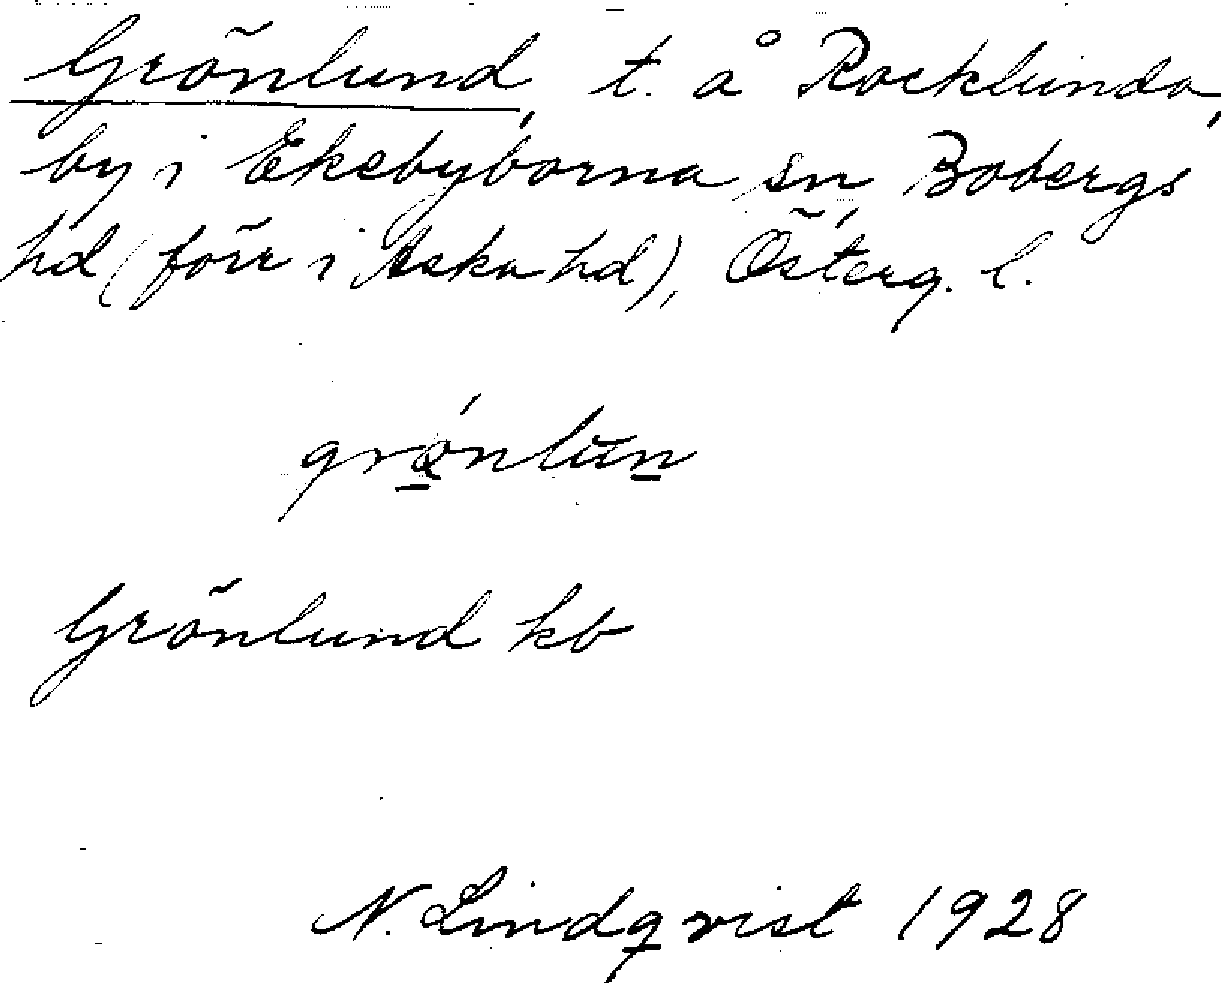 Grönlund, t. å Rocklunda,
by i Ekebyborna sn Bobergs
hd (förr i Aska hd), Österg. l.
grǿnlŭn
Grönlund kb
N. Lindqvist 1928